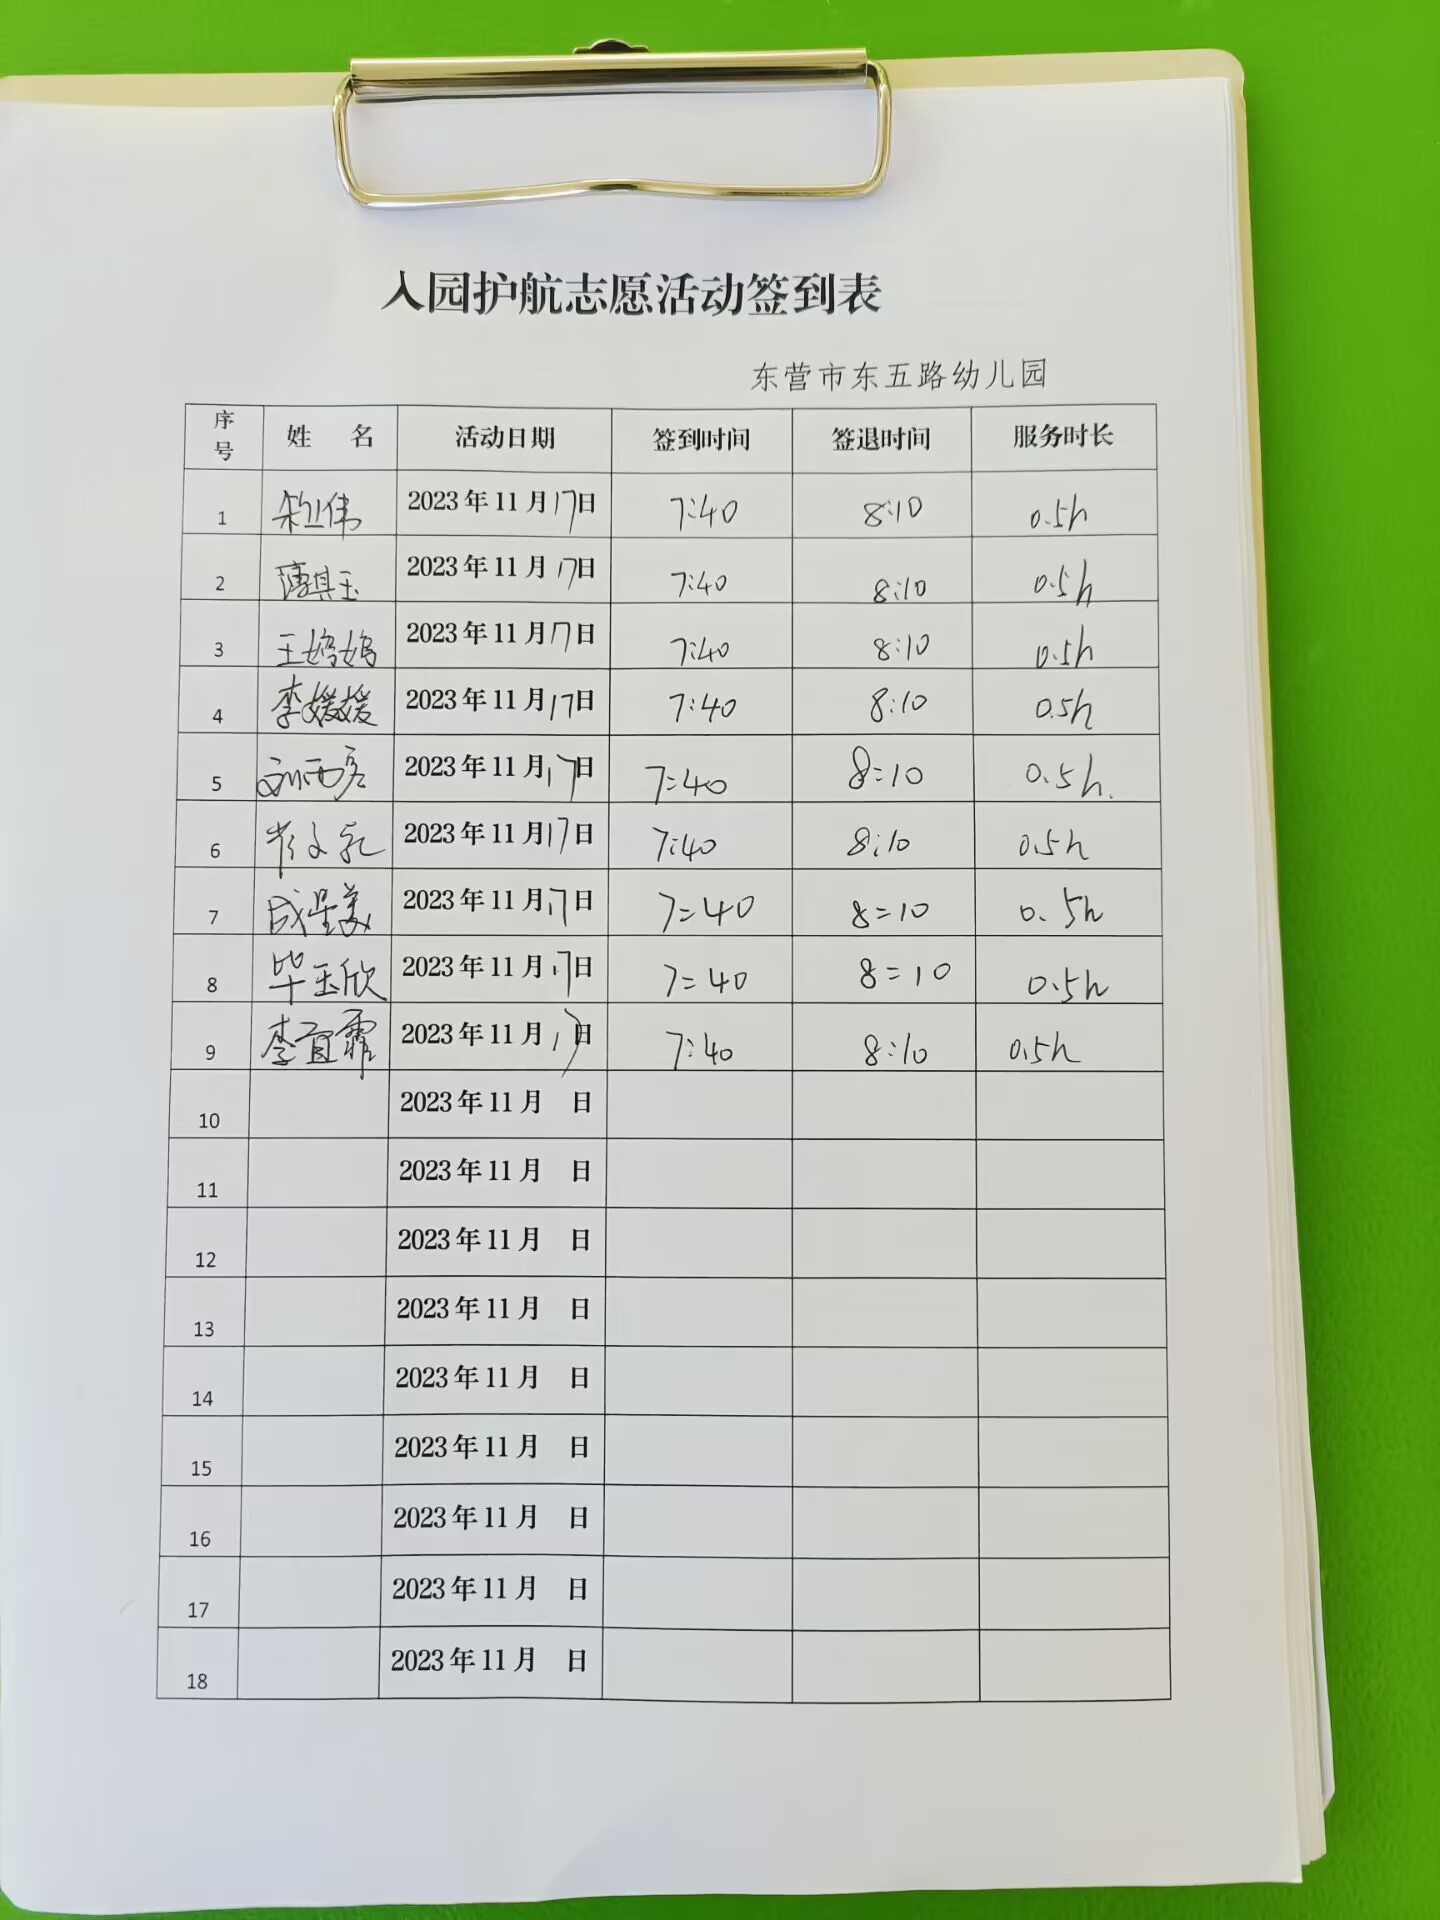 入园护航志愿活动签到表
东营市东五路幼儿园
序号 姓 名 活动日期 签到时间 签退时间 服务时长
1 伟 2023年11月17日 7:40 8:10 0.5h
2 薄其玉 2023年11月17日 7:40 8:10 0.5h
3 王嫣嫣 2023年11月17日 7:40 8:10 0.5h
4 李媛媛 2023年11月17日 7:40 8:10 0.5h
5 刘西 2023年11月17日 7:40 8:10 0.5h.
6 文 2023年11月17日 7:40 8:10 0.5h
7 成星美 2023年11月17日 7:40 8:10 0.5h
8 毕玉欣 2023年11月17日 7:40 8:10 0.5h
9 李宜霏 2023年11月17日 7:40 8:10 0.5h
10 2023年11月 日
11 2023年11月 日
12 2023年11月 日
13 2023年11月 日
14 2023年11月 日
15 2023年11月 日
16 2023年11月 日
17 2023年11月 日
18 2023年11月 日